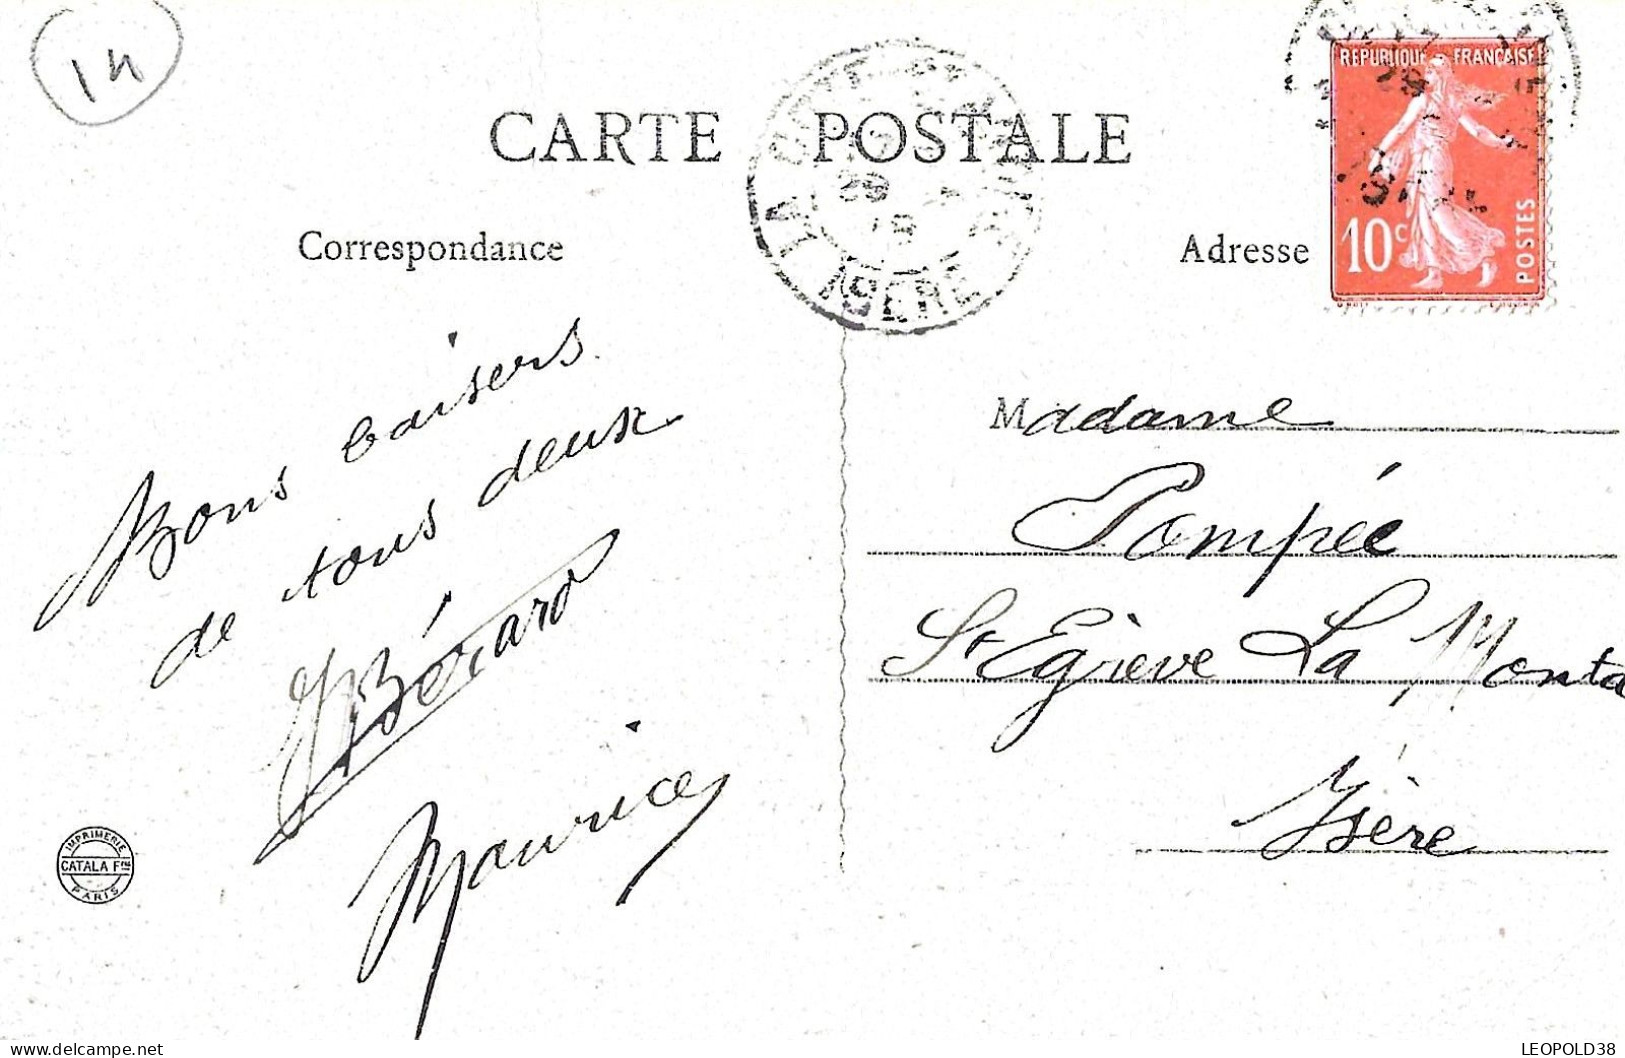 14
CARTE POSTALE
REPUBLIQUE FRANÇAISE
10c
POSTES
LA
ISÈRE
Correspondance
Adresse
Bons baisers
de tous deux
Bérard
Maurice
Madame
Pompée
St Egrève La Monta
Isère
IMPRIMERIE
CATALA Fres
PARIS
LEOPOLD38